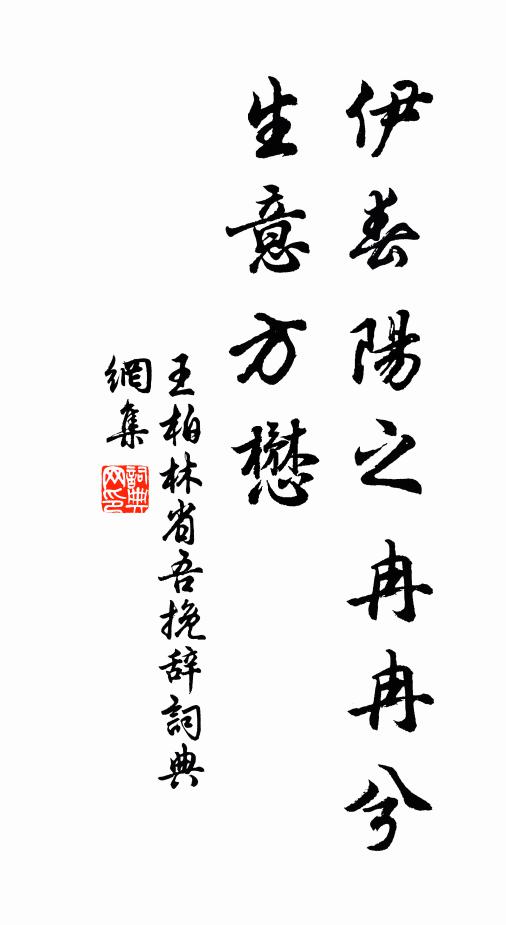 伊春陽之冉冉兮
生意方懋
王柏林省吾挽辞詞典
網集
詞典網印